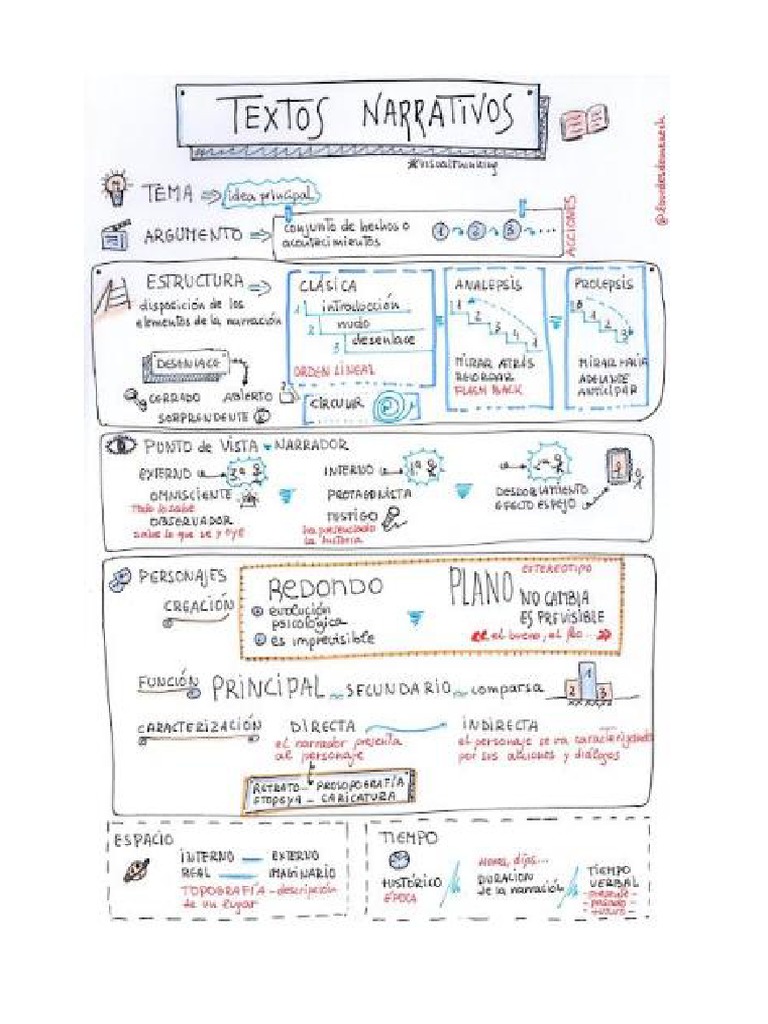 TEXTOS NARRATIVOS
#visualthinking
@lourdesdomenech
TEMA ⇒ idea principal
ARGUMENTO ⇒ conjunto de hechos o
acontecimientos
1 2 3 ...
ACCIONES
ESTRUCTURA ⇒
disposición de los
elementos de la narración
DESENLACE
CERRADO ABIERTO
SORPRENDENTE
CLÁSICA
1 introducción
2 nudo
3 desenlace
ORDEN LINEAL
CIRCULAR
ANALEPSIS
MIRAR ATRÁS
RECORDAR
FLASH BACK
PROLEPSIS
MIRAR HACIA
ADELANTE
ANTICIPAR
PUNTO de VISTA NARRADOR
EXTERNO 3ª
OMNISCIENTE
Todo lo sabe
OBSERVADOR
sabe lo que ve y oye
INTERNO 1ª
PROTAGONISTA
TESTIGO
ha presenciado
la historia
DESDOBLAMIENTO
EFECTO ESPEJO
PERSONAJES
CREACIÓN
REDONDO
evolución
psicológica
es imprevisible
PLANO
ESTEREOTIPO
NO CAMBIA
ES PREVISIBLE
el bueno, el feo...
FUNCIÓN PRINCIPAL SECUNDARIO comparsa
2 1 3
CARACTERIZACIÓN
DIRECTA
el narrador presenta
al personaje
INDIRECTA
el personaje se va caracterizando
por sus acciones y diálogos
RETRATO - PROSOPOGRAFÍA
ETOPEYA - CARICATURA
ESPACIO
INTERNO EXTERNO
REAL IMAGINARIO
TOPOGRAFÍA - descripción
de un lugar
TIEMPO
HISTÓRICO
ÉPOCA
horas, días...
DURACIÓN
de la narración
TIEMPO
VERBAL
- presente -
- pasado -
- futuro -